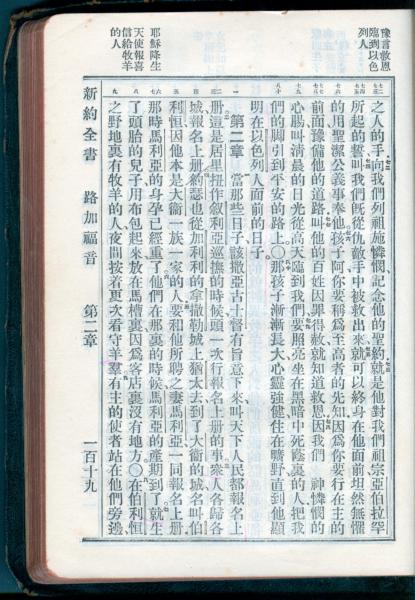 豫言救恩
臨到以色
列人
耶穌降生
天使報喜
信給牧羊
的人
之人的手向我們列祖施憐憫記念他的聖約就是他對我們祖宗亞伯拉罕
所起的誓叫我們旣從仇敵手中被救出來就可以終身在他面前坦然無懼
的用聖潔公義事奉他孩子阿你要稱爲至高者的先知因爲你要行在主的
前面豫備他的道路叫他的百姓因罪得赦就知道救恩因我們 神憐憫的
心腸叫清晨的日光從高天臨到我們要照亮坐在黑暗中死蔭裏的人把我
們的脚引到平安的路上〇那孩子漸漸長大心靈强健住在曠野直到他顯
明在以色列人面前的日子
第二章 當那些日子該撒亞古士督有旨意下來叫天下人民都報名上
册這是居里扭作叙利亞巡撫的時候頭一次行報名上册的事衆人各歸各
城報名上册約瑟也從加利利的拿撒勒城上猶太去到了大衞的城名叫伯
利恒因他本是大衞一族一家的人要和他所聘之妻馬利亞一同報名上册
那時馬利亞的身孕已經重了他們在那裏的時候馬利亞的產期到了就生
了頭胎的兒子用布包起來放在馬槽裏因爲客店裏沒有地方〇在伯利恒
之野地裏有牧羊的人夜間按着更次看守羊羣有主的使者站在他們旁邊
新約全書 路加福音 第二章 一百十九